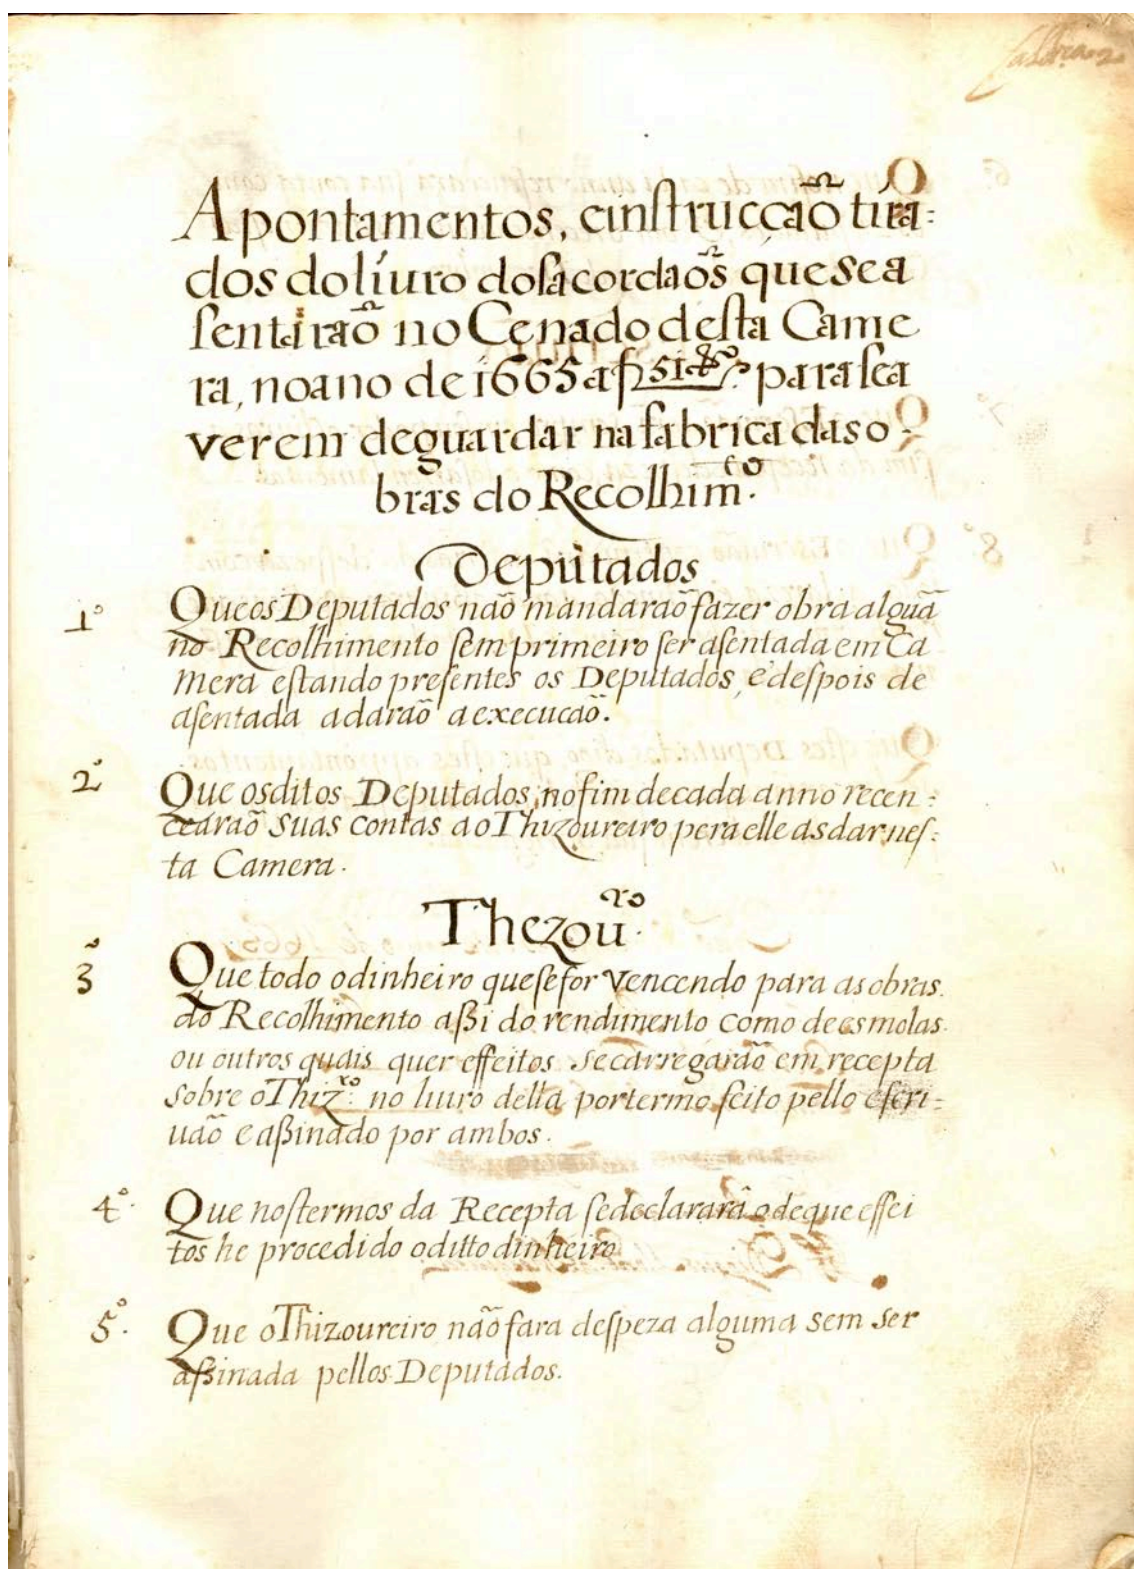 Apontamentos, einstrucçaõ tira=
dos doliuro dosacordaõs quesea
sentaraõ no Cenado desta Came
ra, noano de 1665 af 51 parasea
verem deguardar nafabrica daso
bras do Recolhim.to
Deputados
1º Queos Deputados naõ mandaraõ fazer obra alguã
no Recolhimento sem primeiro ser asentada em Ca
mera estando presentes os Deputados, e despois de
asentada a daraõ a execucaõ.
2º Que osditos Deputados, nofim decada anno recen=
cearaõ suas contas aoThizoureiro peraelle asdar nes=
ta Camera.
Thezou.ro
3 Que todo odinheiro quesefor vencendo para asobras
do Recolhimento aßi do rendimento como deesmolas
ou outros quais quer effeitos secarregaraõ em recepta
sobre oThiz.ro no liuro della portermo feito pello escri=
uaõ e aßinado por ambos.
4º Que nostermos da Recepta sedeclarará odeque effei
tos he procedido oditto dinheiro
5º Que oThizoureiro naõ fara despeza alguma sem ser
aßinada pellos Deputados.